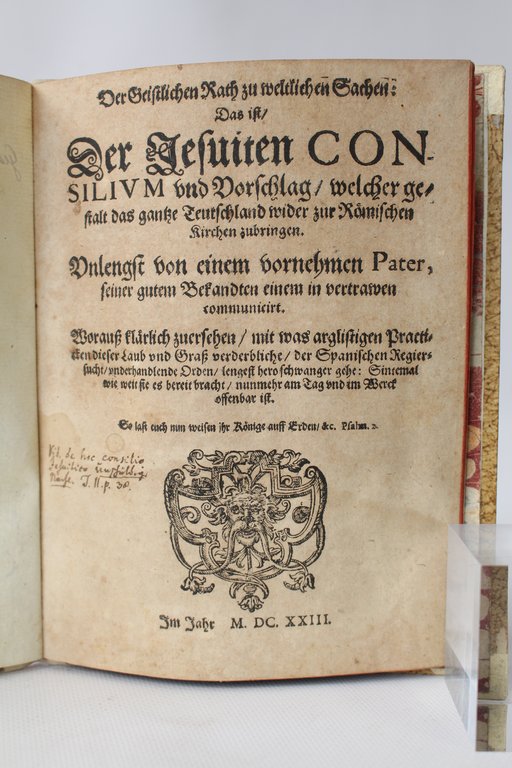 Der Geistlichen Rath zu weltlichen Sachen:
Das ist/
Der Jesuiten CON-
SILIVM vnd Vorschlag/ welcher ge-
stalt das gantze Teutschland wider zur Römischen
Kirchen zubringen.
Vnlengst von einem vornehmen Pater,
seiner gutem Bekandten einem in vertrawen
communicirt.
Worauß klärlich zuersehen/ mit was arglistigen Practi-
cken dieser Laub vnd Graß verderbliche/ der Spanischen Regier-
sucht/ vnderhandlende Orden/ lengest hero schwanger gehe: Sintemal
wie weit sie es bereit bracht/ nunmehr am Tag vnd im Werck
offenbar ist.
So last euch nun weisen jhr Könige auff Erden/ &c. Psalm. 2.
de hoc consilio
T. II. p. 38.
Im Jahr M. DC. XXIII.